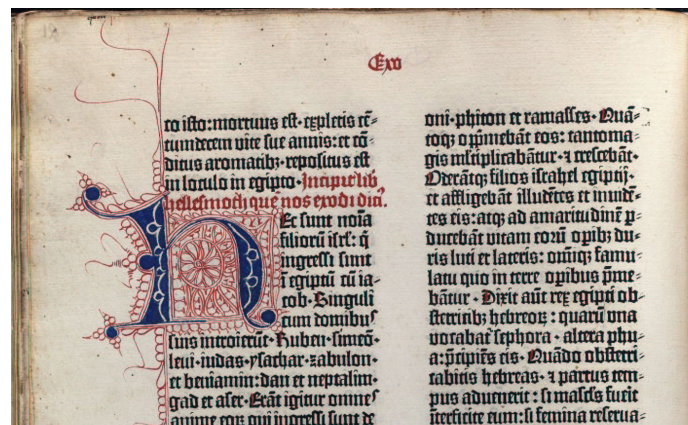 Exo
to isto: mortuus est· expletis cē-
tumdecem vite sue annis: et cō-
ditus aromatibꝫ· repositus est
in loculo in egipto· Incipit lib
hellesmoth quē nos exodi dicī.
Hec sunt noīa
filiorū isrl': q̄
ingressi sunt
ī egiptū cū ia-
cob· Singuli
cum domibus
suis introierūt· Ruben· simeō·
leui· iudas· ysachar· zabulon·
et beniamin: dan et neptalim·
gad et aser· Erāt igitur omnes
anime eoꝝ qui ingressi sunt de
oni· phiton et ramasses· Quā-
toqꝫ opp̄mebāt eos: tantoma-
gis ml̓tiplicabātur· ⁊ crescebāt·
Oderātqꝫ filios israhel egiptij·
et affligebāt illudētes et inuidē-
tes eis: atqꝫ ad amaritudinē p̲-
ducebāt vitam eorū opibꝫ du-
ris luti et lateris: omīqꝫ famu-
latu quo in terre opibus p̄me-
bātur· Dixit aūt rex egipti ob-
stetricibꝫ hebreoꝝ: quarū vna
vocabat᷑ sephora· altera phu-
a: p̄cipiēs eis· Quādo obstetri-
cabitis hebreas· ⁊ partus tem-
pus aduenerit: si masc̓ls fuerit
īterficite eum: si femina reserua-